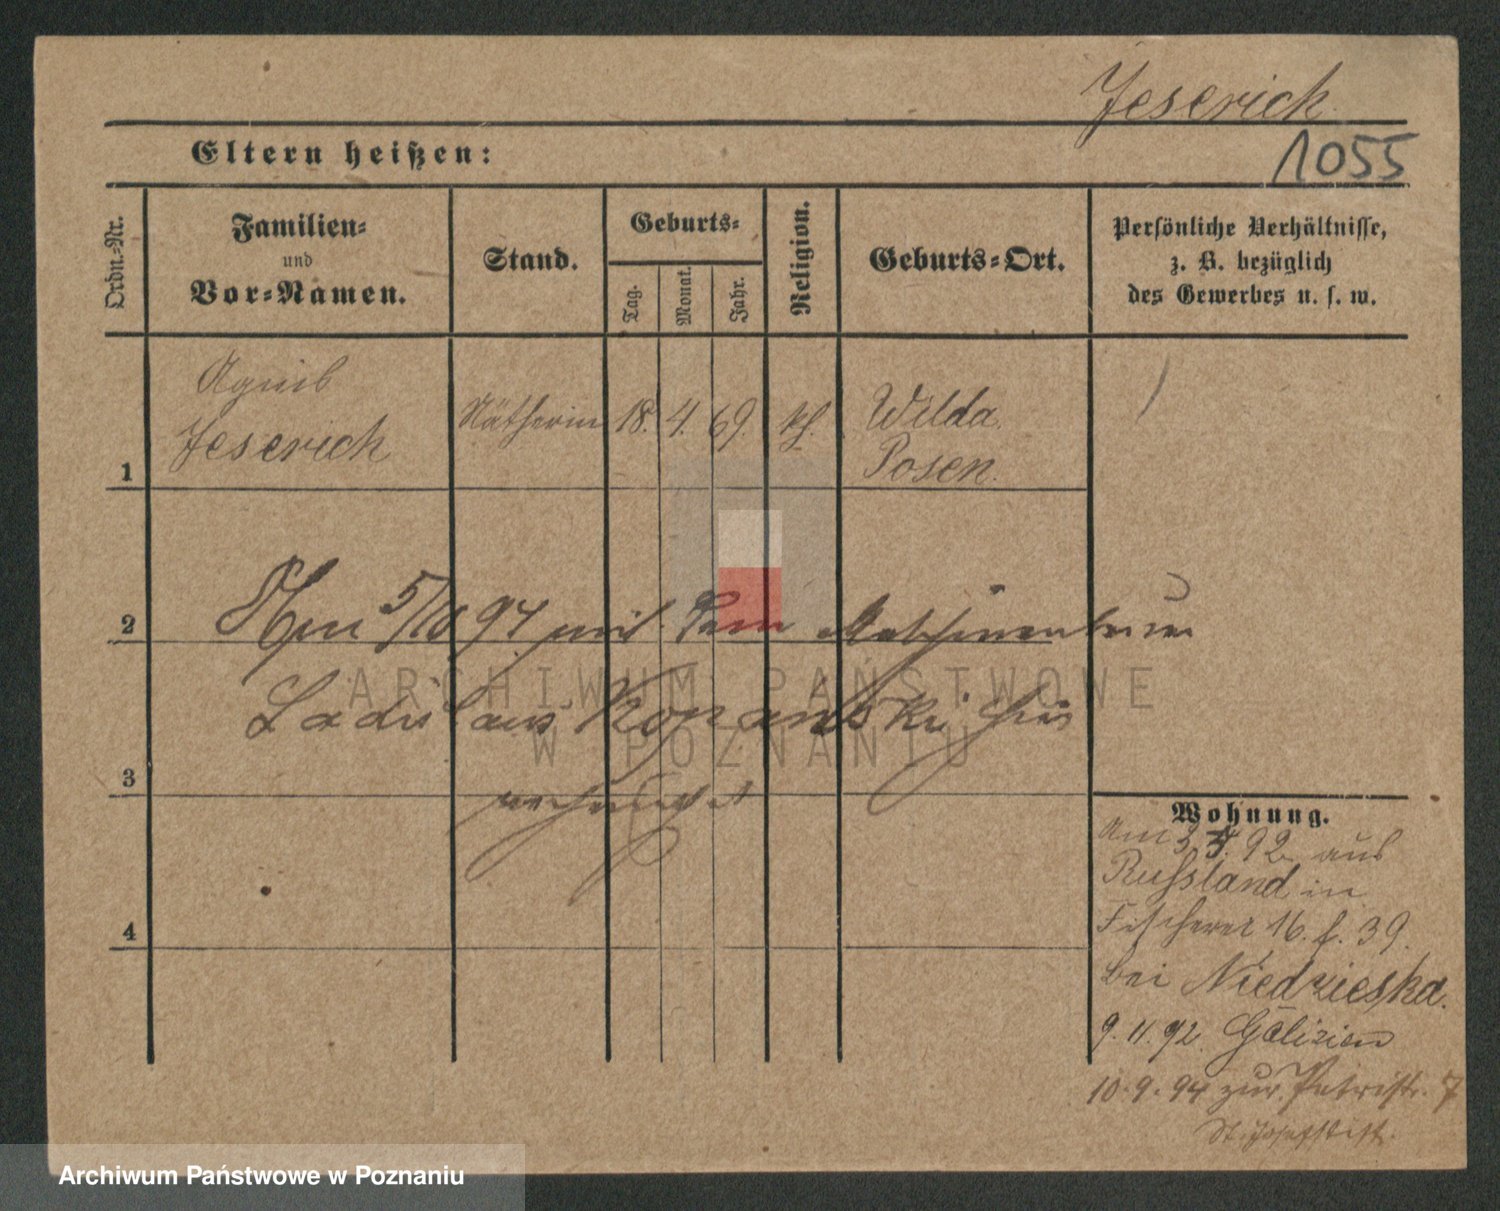 Jeserich
1055
Eltern heißen:
Ordn.-Nr.
Familien-
und
Vor-Namen.
Stand.
Geburts-
Tag.
Monat.
Jahr.
Religion.
Geburts-Ort.
Persönliche Verhältnisse,
z. B. bezüglich
des Gewerbes u. s. w.
1
Agnes
Jeserich
Nätherin
18.
4.
69.
kth.
Wilda
Posen.
2
Am 5/10 94 mit dem
Ladislaus
3
4
Wohnung.
Am 3. 5. 92. aus
Russland in
Fischerei 16. f. 39.
bei Niedzieska.
9. 11. 92. Galizien
10. 9. 94 zur. Petristr. 7
St. Josefstift.
ARCHIWUM PAŃSTWOWE
W POZNANIU
Archiwum Państwowe w Poznaniu